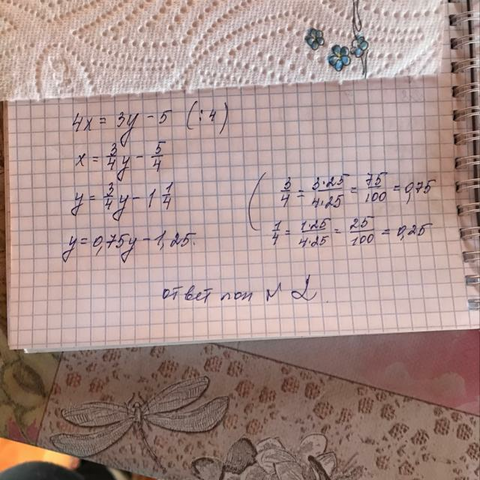 4x = 3y - 5 (:4)
x = 3/4 y - 5/4
y = 3/4 y - 1 1/4
y = 0,75y - 1,25.
( 3/4 = 3·25/4·25 = 75/100 = 0,75
1/4 = 1·25/4·25 = 25/100 = 0,25
ответ под N 2.